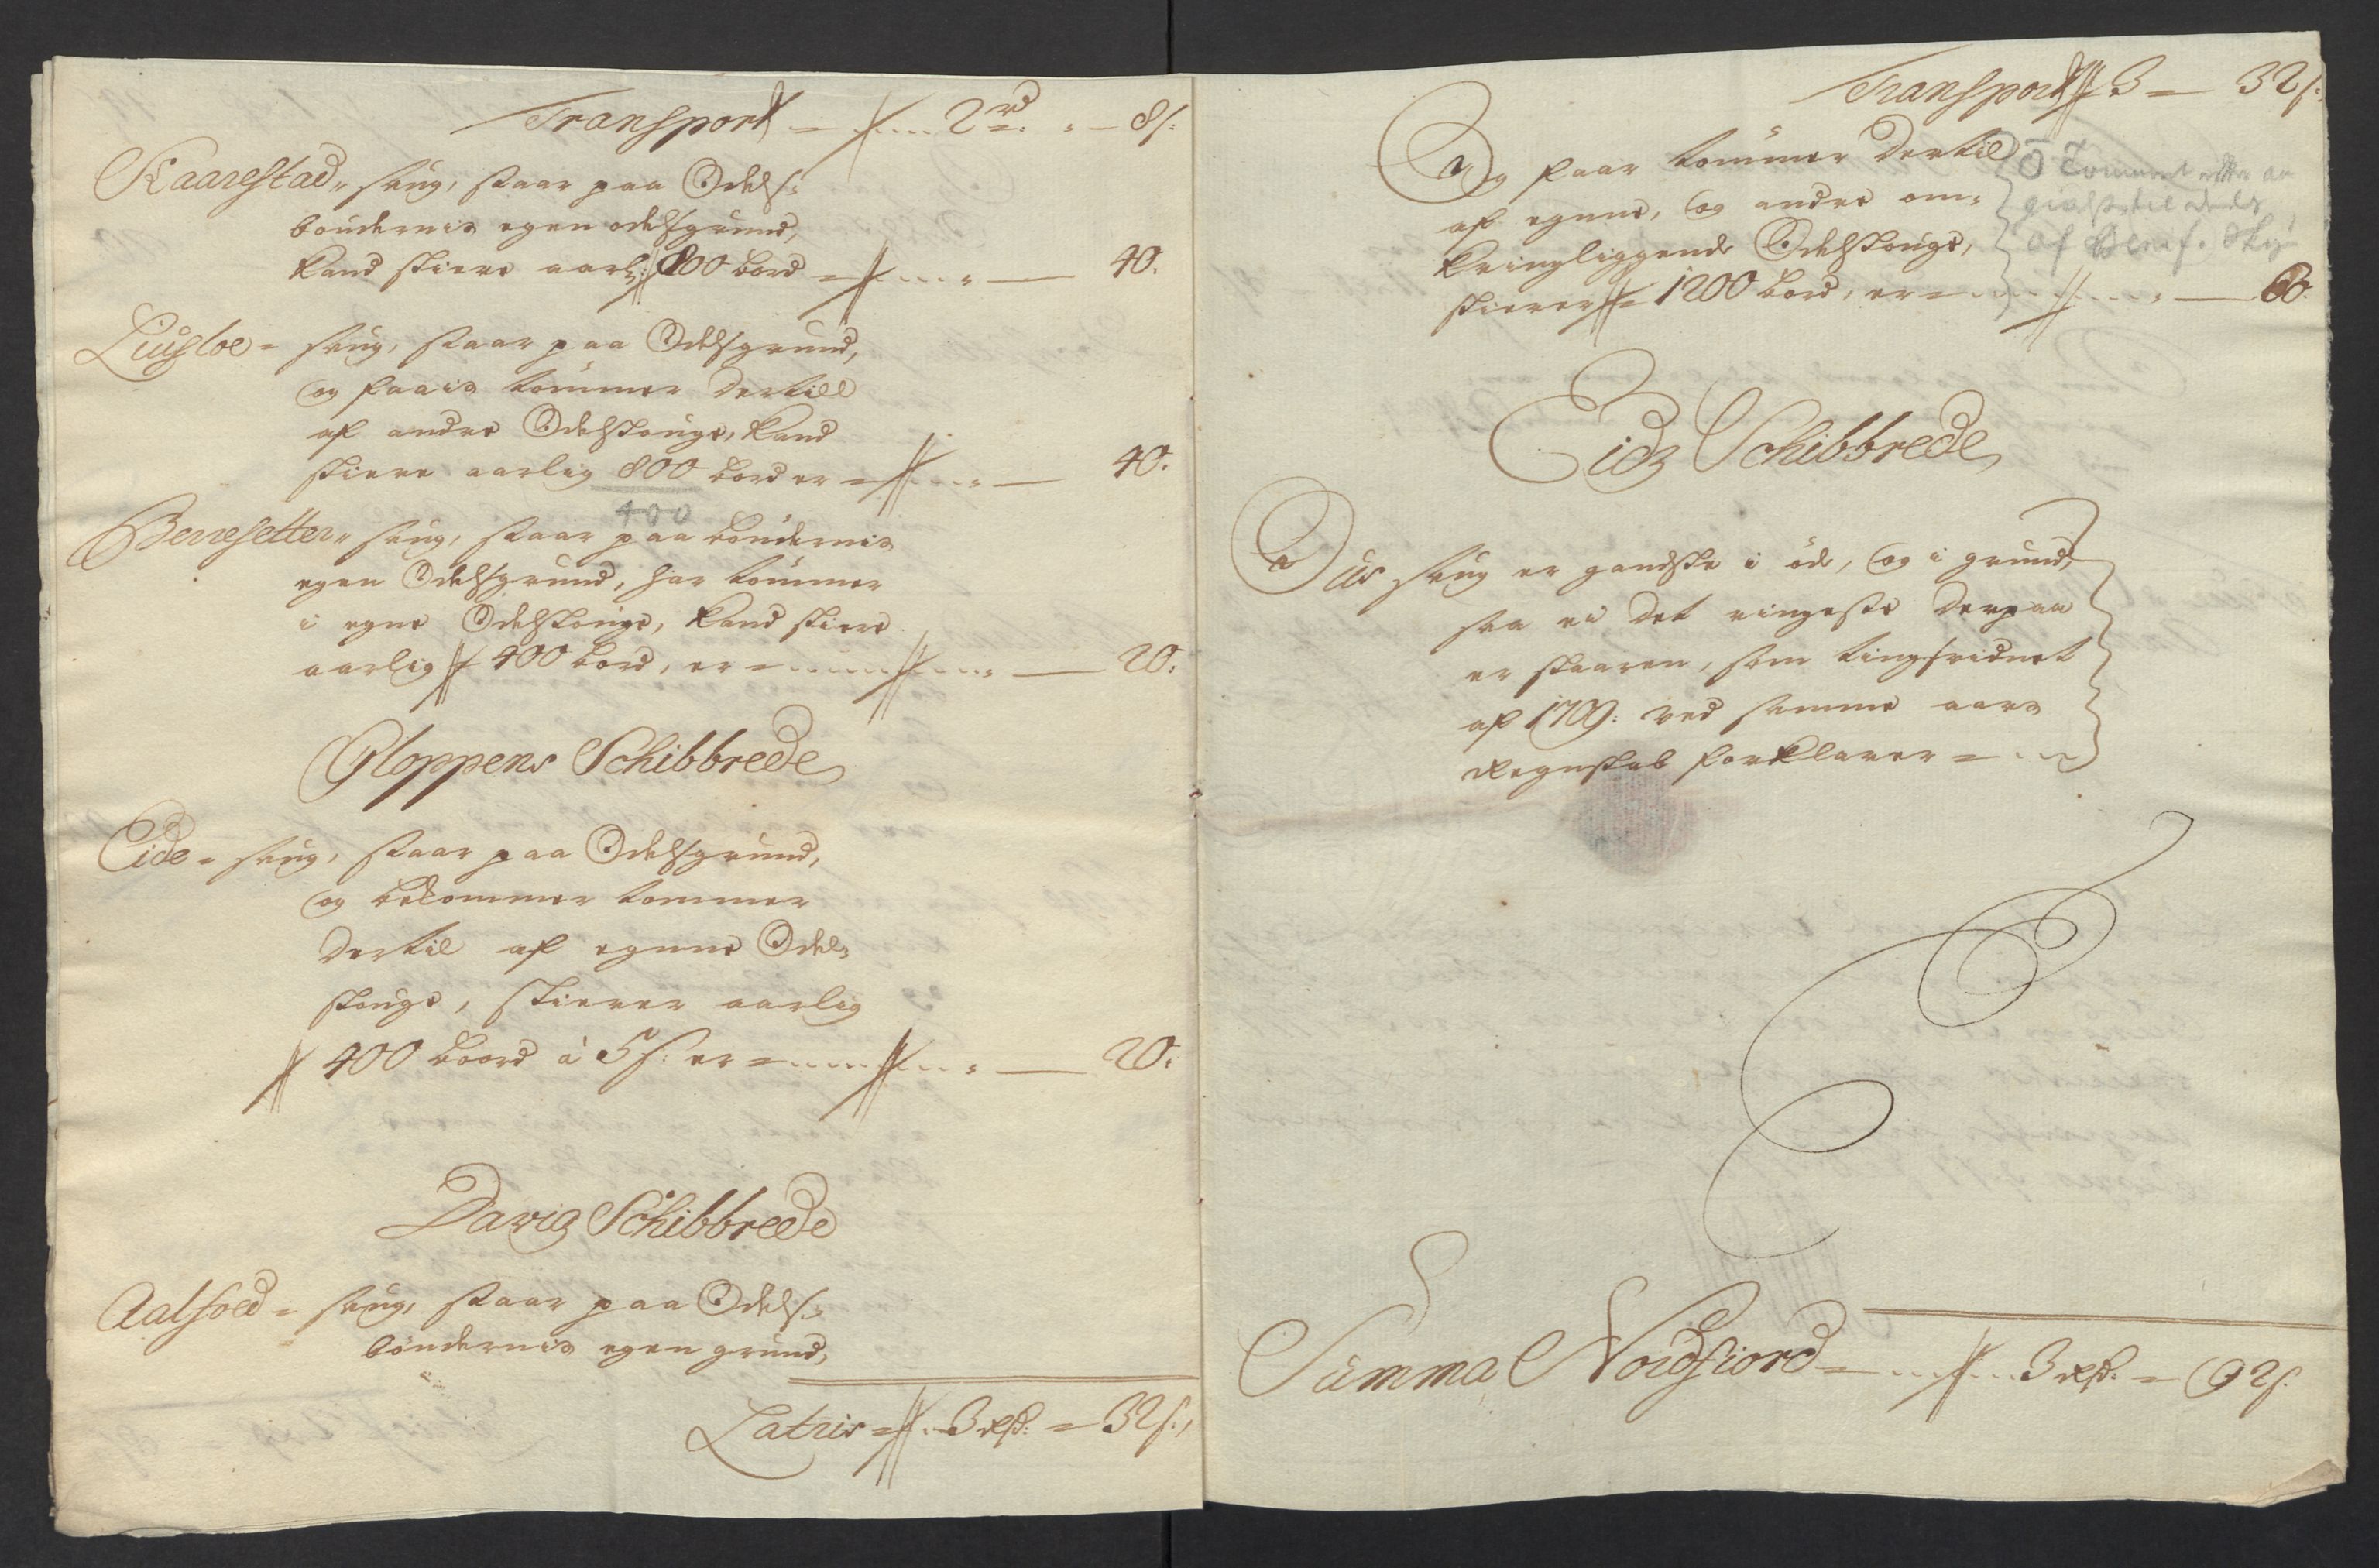 Transport = 2 rd = 8 s:
Kaarestad = saug, staar paa Odelß:
böndernis egen odelßgrund,
kand skiere aarl: 800 bord = 40.
staar paa Odelßgrund,
og faais tömmer dertill
af andre Odelskouge, kand
skiere aarlig 800 bord er = 40.
400
saug, staar paa böndernis
egen Odelßgrund, har tömmer
i egne Odelskouge, kand skiere
aarlig 400 bord, er = 20:
Gloppens Schibbrede
Eide = saug, staar paa Odelßgrund,
og bekommer tommer
dertil af egene Odel=
skouge, skierer aarlig
400 boord à 5 s: er = 20:
Davigs Schibbrede
saug, staar paa Odelß:
böndernis egen grund,
Latris = 3 rdr: = 32 s:
Transport 3 = 32 s:
Og faar tömmer dertil
af egene, og andre om=
kringliggende Odelskouge,
skierer 1200 bord, er = 60.
Tommeret
af
Eidz Schibbrede
saug er gandske i öde, og i grund,
saa ei det ringeste derpaa
er skaaren, som tingsvidnet
af 1709: ved samme aars
Regnskab forklarer =
Summa Nordfiord = 3 rdr: = 92 s: